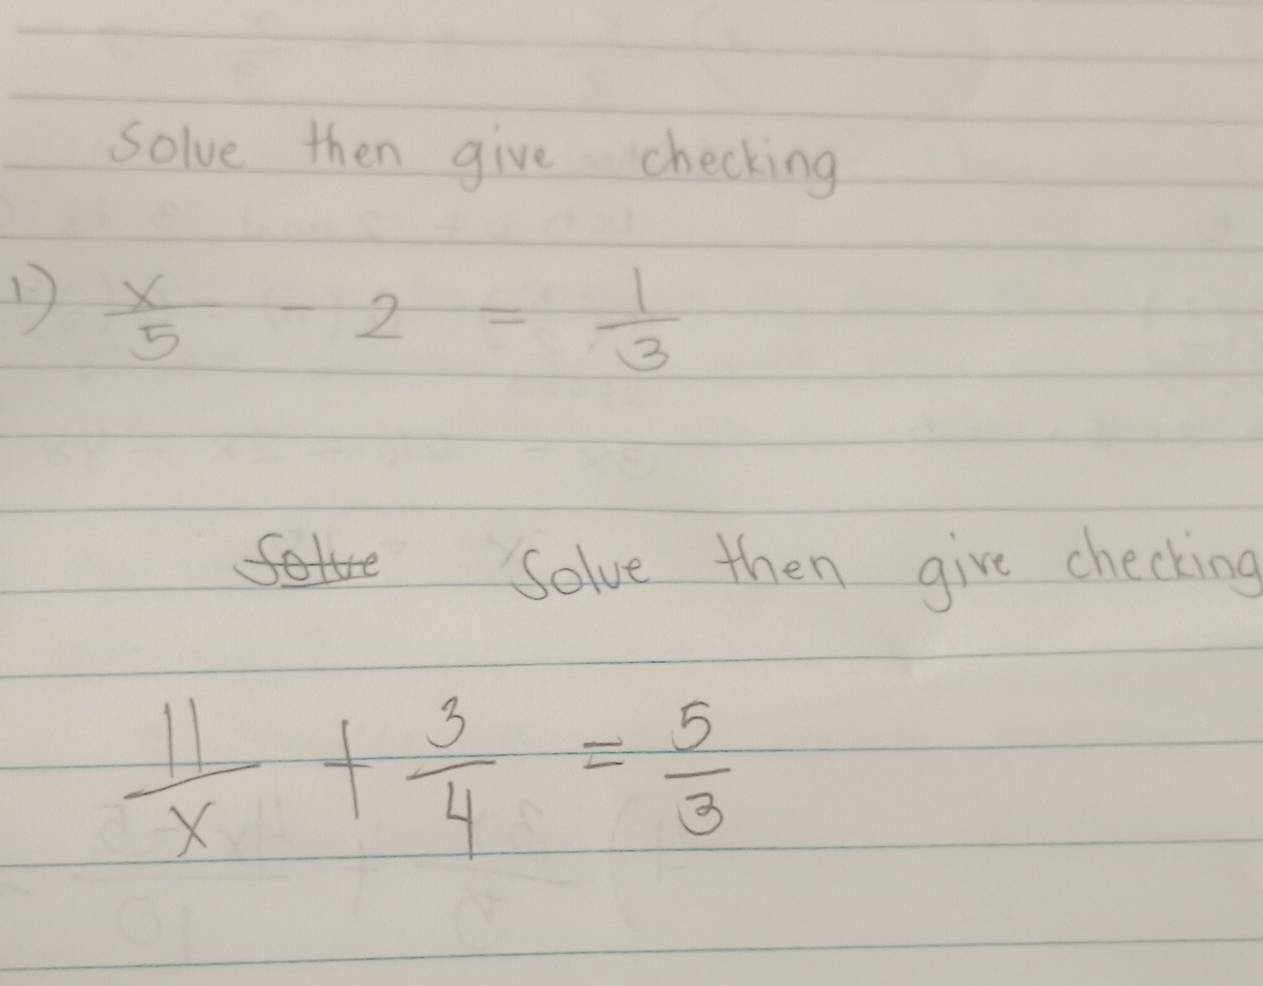 Solve then give checking
1) x/5 - 2 = 1/3
Solve Solve then give checking
11/x + 3/4 = 5/3